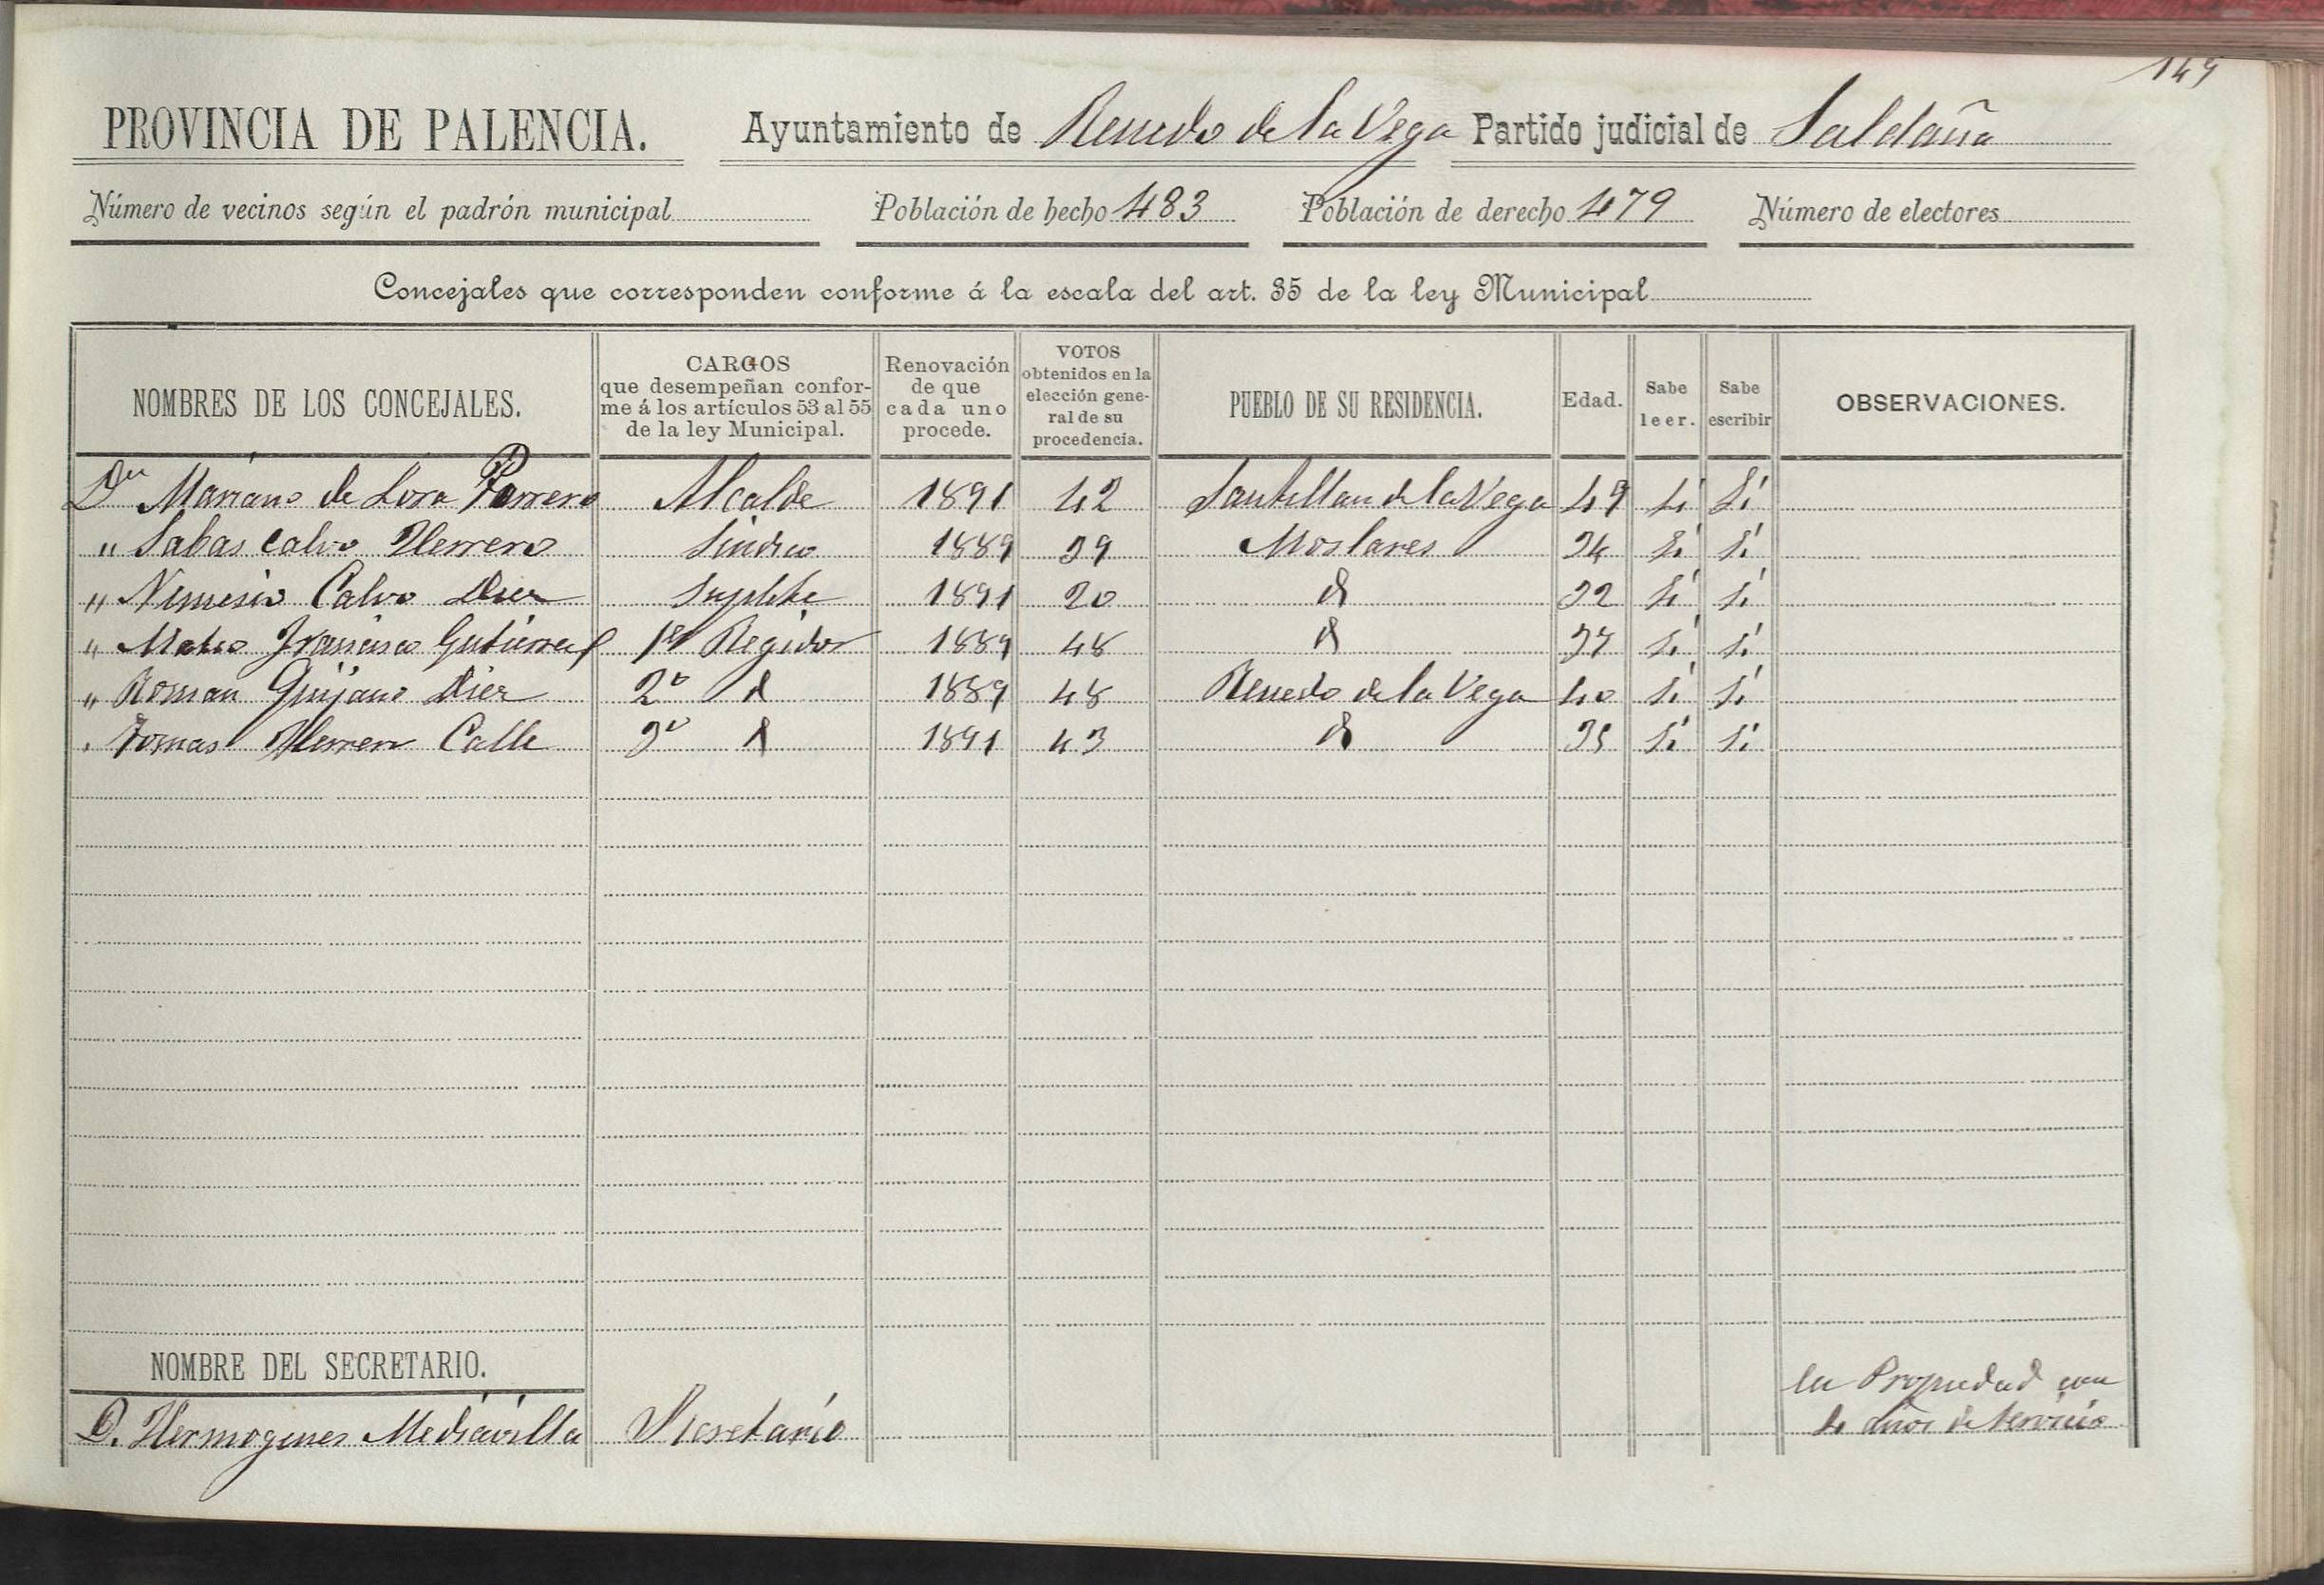 149
PROVINCIA DE PALENCIA. Ayuntamiento de Renedo de la Vega Partido judicial de Saldaña
Número de vecinos según el padrón municipal Población de hecho 483 Población de derecho 479 Número de electores
Concejales que corresponden conforme á la escala del art. 35 de la ley Municipal
NOMBRES DE LOS CONCEJALES.
CARGOS
que desempeñan confor-
me á los artículos 53 al 55
de la ley Municipal.
Renovación
de que
cada uno
procede.
VOTOS
obtenidos en la
elección gene-
ral de su
procedencia.
PUEBLO DE SU RESIDENCIA.
Edad.
Sabe
leer.
Sabe
escribir
OBSERVACIONES.
Dn Mariano de Lora Herrero Alcalde 1891 42 Santillan de la Vega 49 Si Si
" Sabas Calvo Herrero Sindico 1889 39 Moslares 34 Si Si
" Nemesio Calvo Diez Suplente 1891 20 d 32 Si Si
" Mateo Francisco Gutierrez 1er Regidor 1889 48 d 37 Si Si
" Roman Guijano Diez 2º d 1889 48 Renedo de la Vega 40 Si Si
" Tomas Herrero Calle 3º d 1891 43 d 35 Si Si
NOMBRE DEL SECRETARIO.
D. Hermogenes Mediavilla Secretario
En Propiedad con
4 años de servicio